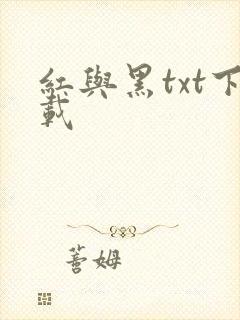 紅與黑txt下
載
蒼姆